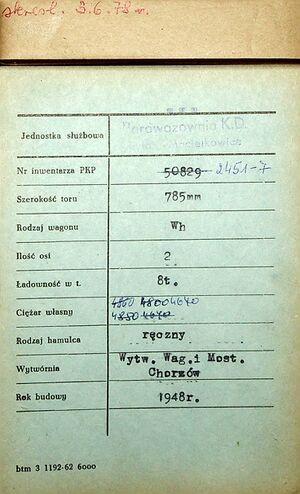 skreśl. 3.6.78 r.
Jednostka służbowa Parowozownia K.D.
Nr inwentarza PKP 50829 2451-7
Szerokość toru 785mm
Rodzaj wagonu Wh
Ilość osi 2
Ładowność w t. 8t.
4860 4800 4640
Ciężar własny 4850 4670
Rodzaj hamulca ręczny
Wytwórnia Wytw. Wag.i Most. Chorzów
Rok budowy 1948r.
btm 3 1192-62 6000